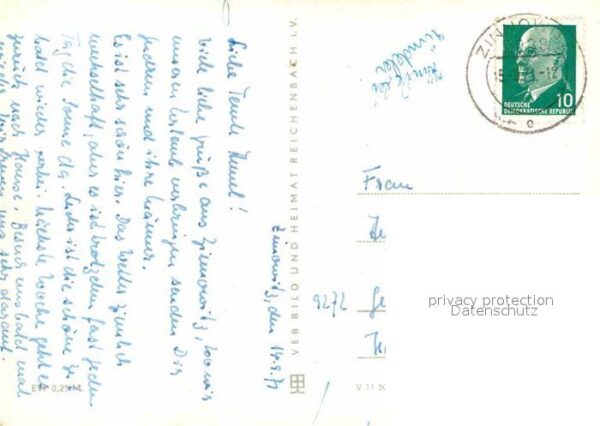 Zinnowitz, den 14.9.71
Liebe Tante Henel!
Viele liebe Grüße aus Zinnowitz, wo wir
unseren Urlaub verbringen senden Dir
und ihre Männer.
Es ist sehr schön hier. Das Wetter ziemlich
wechselhaft, aber es ist trotzdem fast jeden
Tag die Sonne da. Leider ist die schöne Zeit
bald wieder vorbei. Nächste Woche geht es
zurück nach Hause. Besuch uns bald mal
wieder, wir freuen uns sehr darauf.
VEB BILD UND HEIMAT REICHENBACH I.V.
EVP 0,25 M
V 11 50
ZINNOWITZ
DEUTSCHE
DEMOKRATISCHE REPUBLIK
10
Frau
9272
privacy protection
Datenschutz